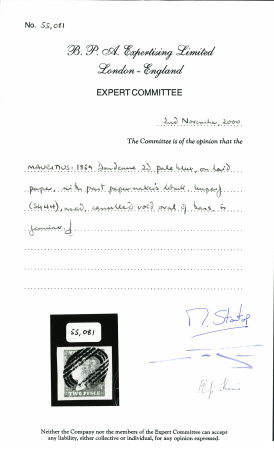 No. 55,081
B. P. A. Expertising Limited
London - England
EXPERT COMMITTEE
2nd November, 2000
The Committee is of the opinion that the
MAURITIUS: 1859 2d pale blue, on laid
paper, with part papermaker's, imperf
(SG44), used, cancelled void oval of bars, is
genuine.
55,081
TWO PENCE
Neither the Company nor the members of the Expert Committee can accept
any liability, either collective or individual, for any opinion expressed.